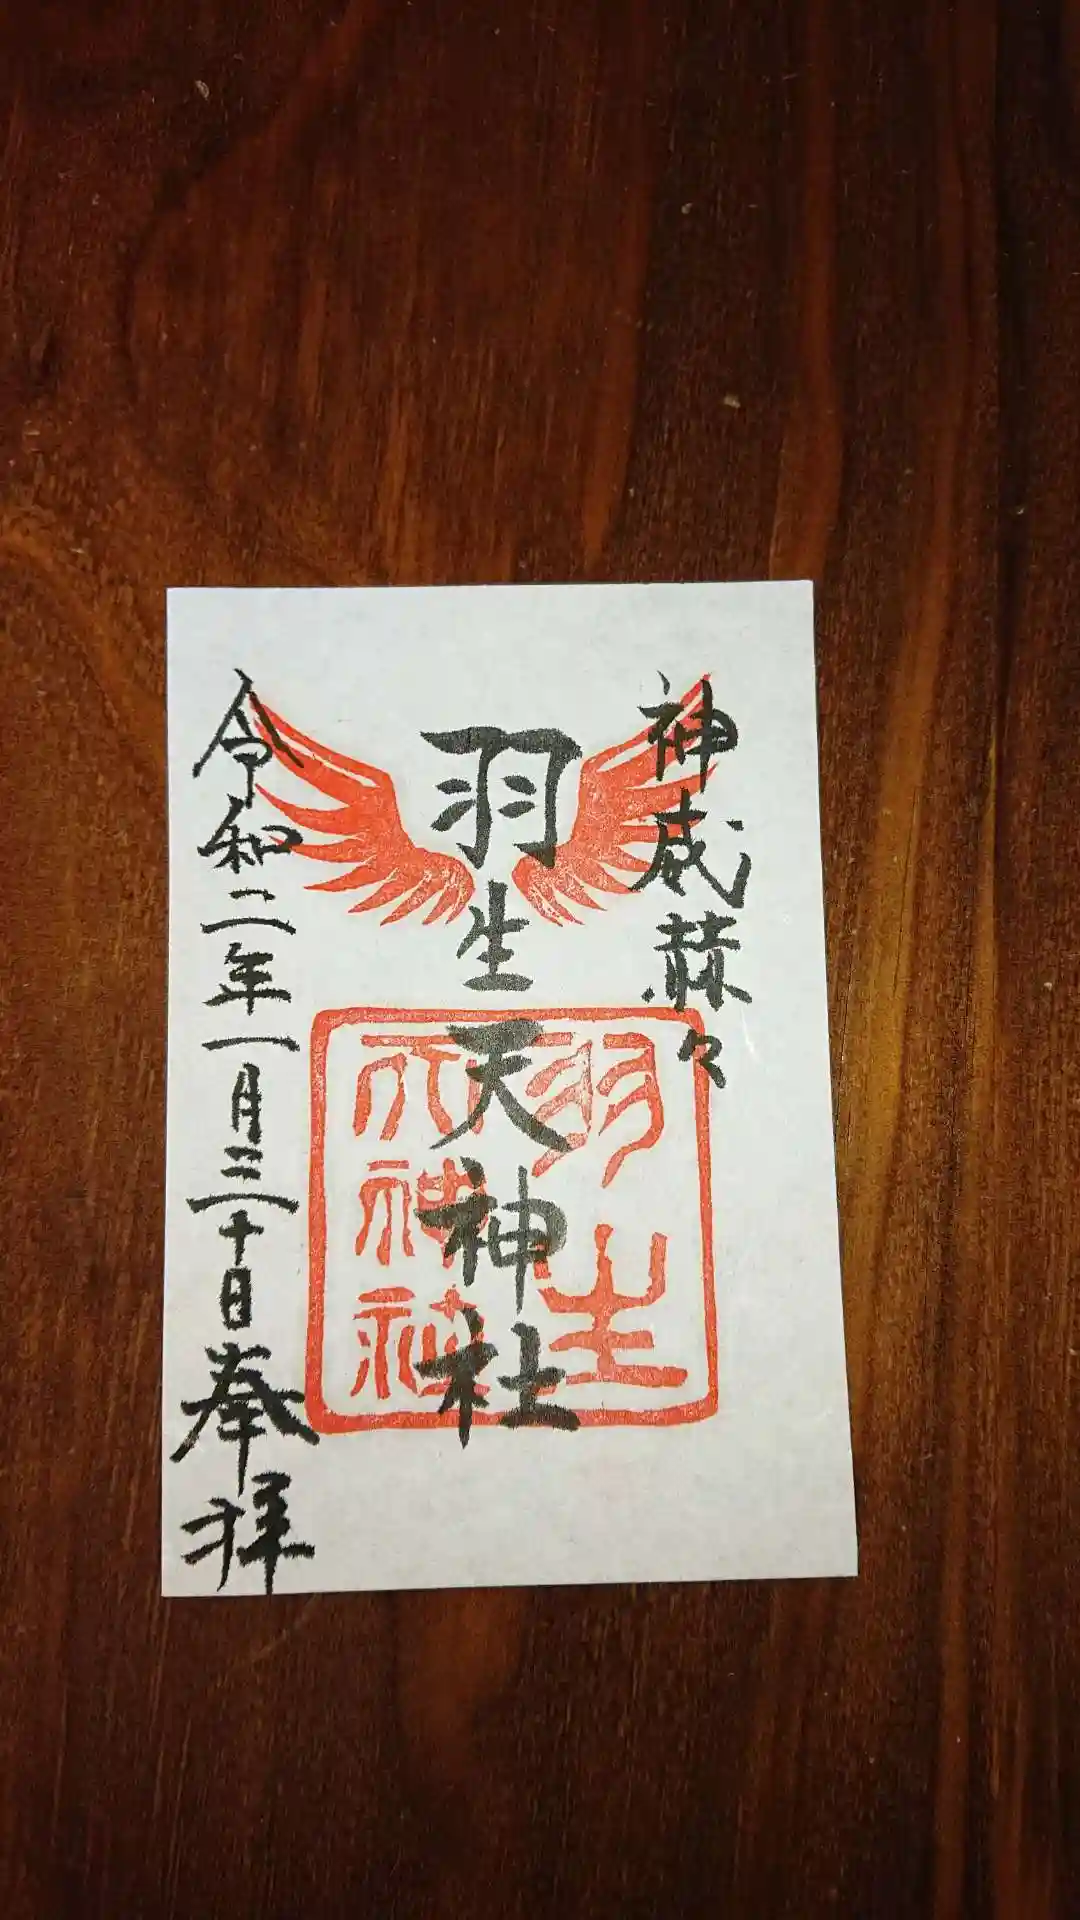 神威赫々
羽生天神社
令和二年一月三十日奉拝
羽生
天神社